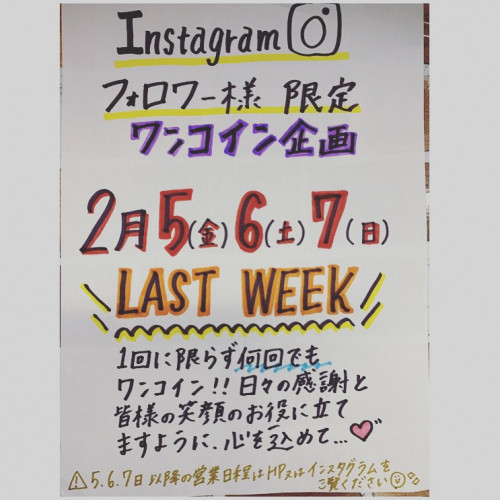 Instagram
フォロワー様 限定
ワンコイン企画
2月5(金)6(土)7(日)
LAST WEEK
1回に限らず何回でも
ワンコイン!! 日々の感謝と
皆様の笑顔のお役に立て
ますように、心を込めて...
⚠5.6.7日以降の営業日程はHP又はインスタグラムを
ご覧ください